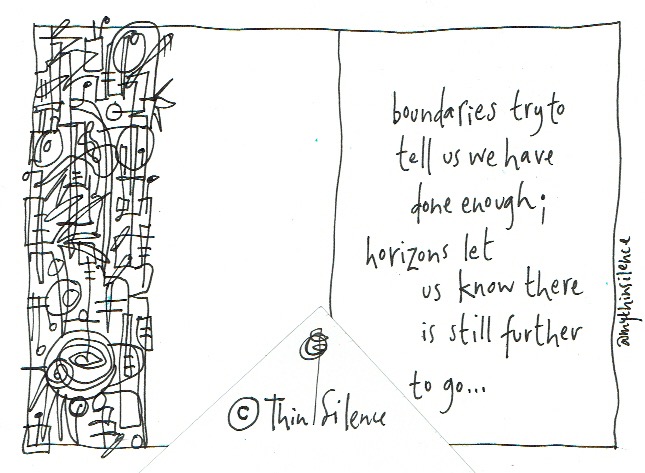 boundaries try to
tell us we have
done enough;
horizons let
us know there
is still further
to go...
@mythinsilence
© Thin Silence